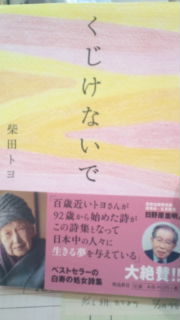 くじけないで
柴田トヨ
百歳近いトヨさんが
92歳から始めた詩が
この詩集となって
日本中の人々に
生きる夢を与えている
ベストセラーの
白寿の処女詩集
日野原重明
大絶賛!!
飛鳥新社